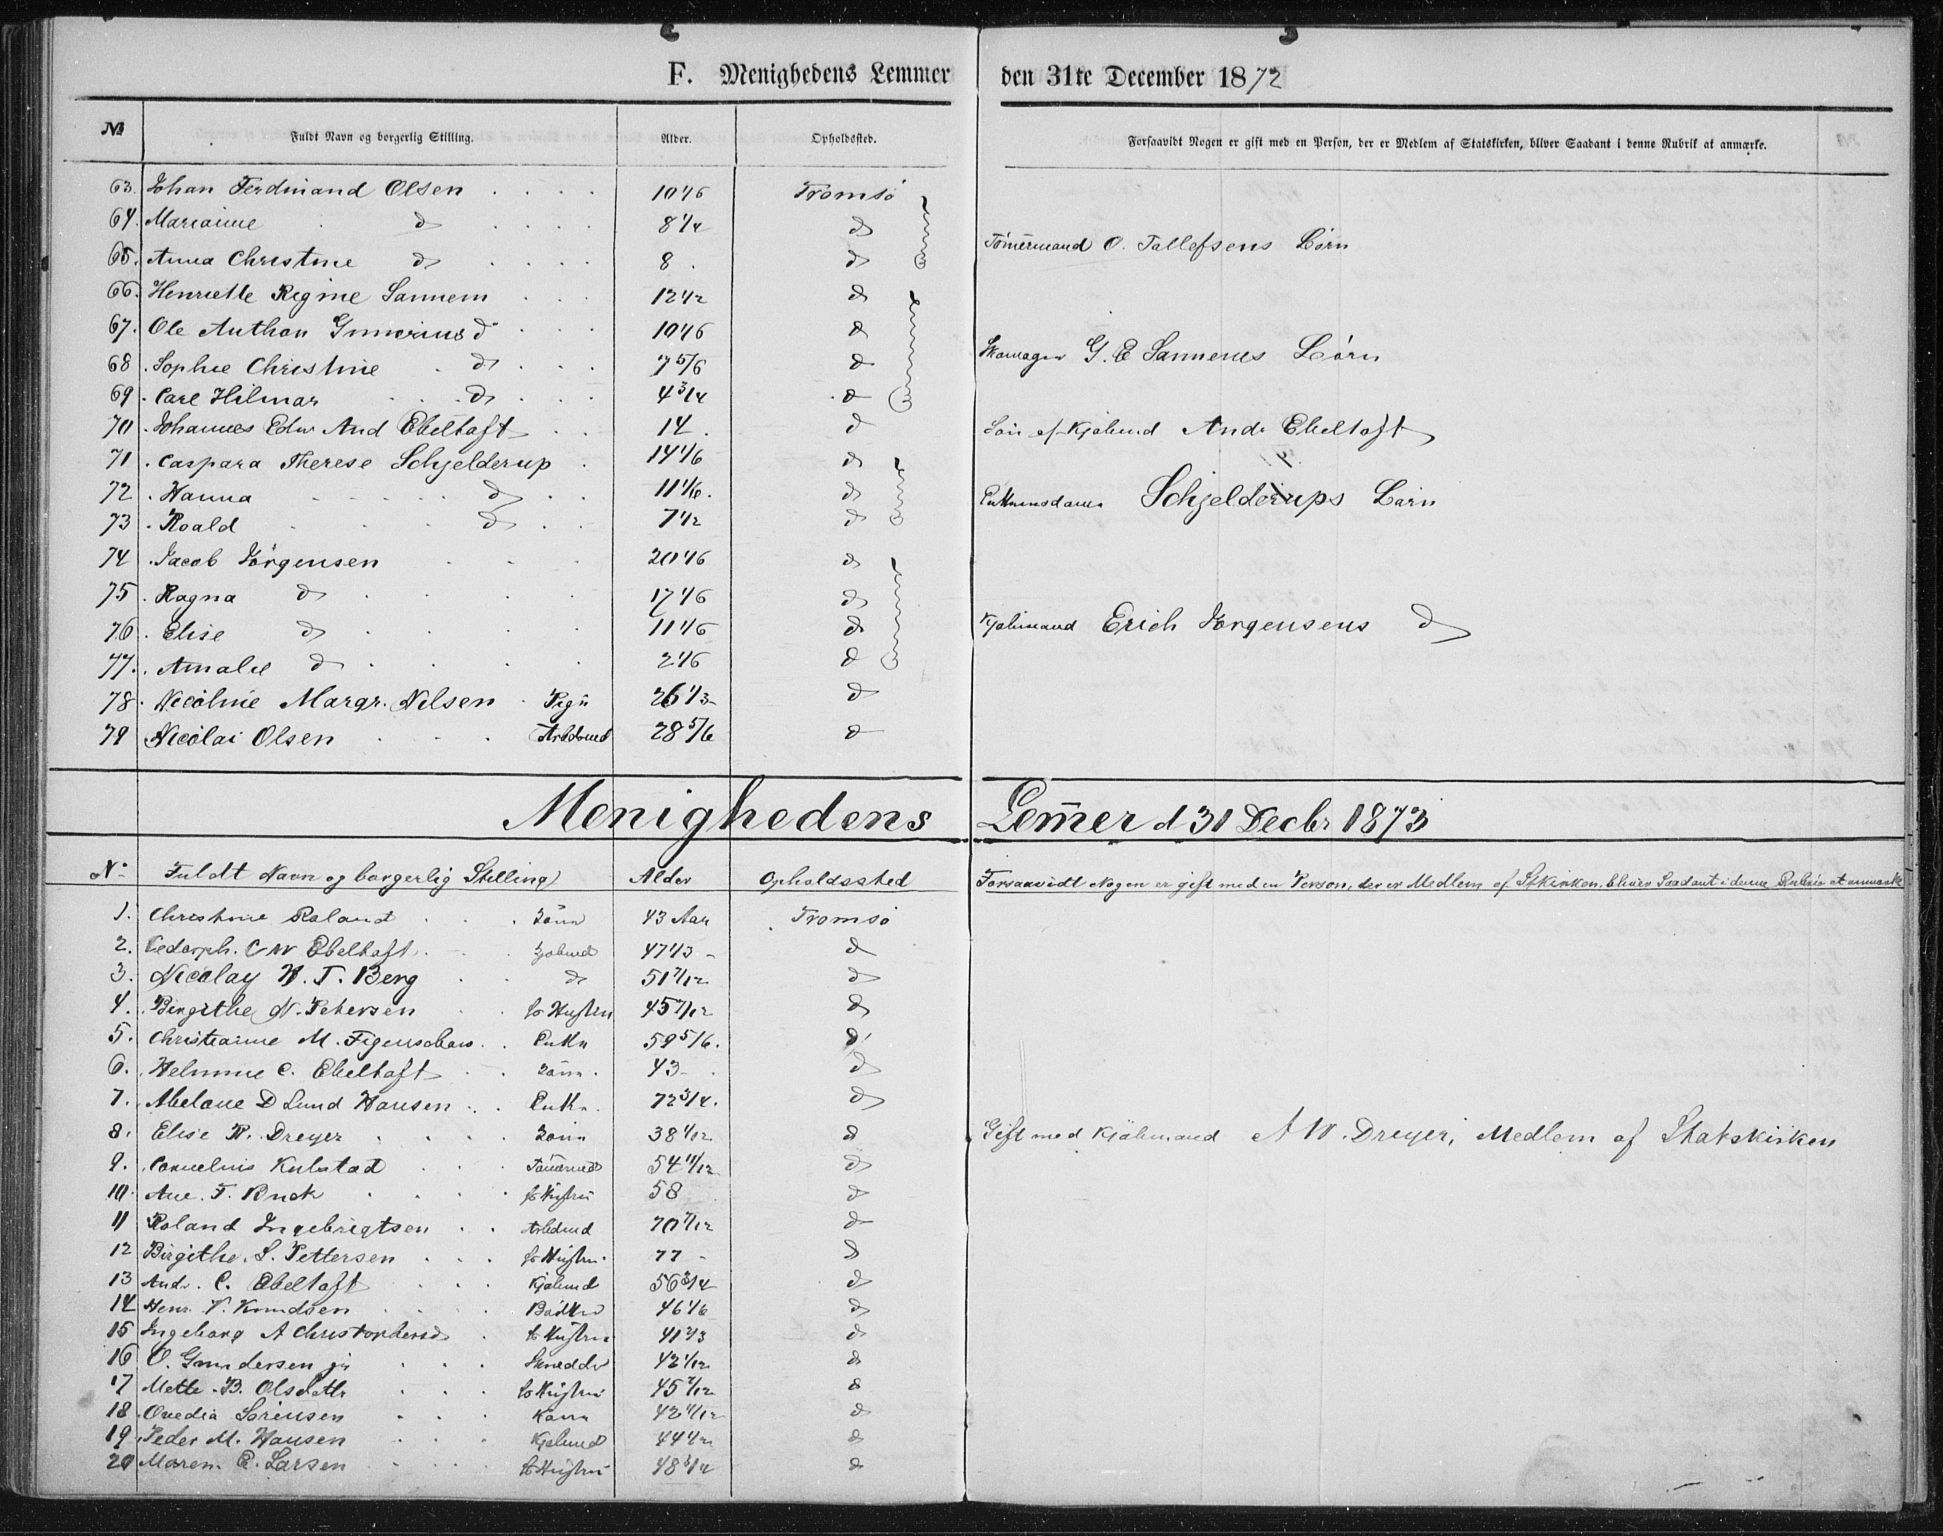 F. Menighedens Lemmer den 31te December 1872
No Fuldt Navn og borgerlig Stilling. Alder. Opholdssted. Forsaavidt Nogen er gift med en Person, der er Medlem af Statskirken, bliver Saadant i denne Rubrik at anmærke.
63. Johan Ferdinand Olsen 10 1/6 Tromsø
64. Marianne do 8 1/4 do
Tömermand O. Tallefsens Börn
65. Anna Christine do 8 do
66. Henriette Regine Sannem 12 1/2 do
67. Ole Anthon Gunnerius do 10 1/6 do
68. Sophie Christine do 7 5/6 do
Skomager G. E Sannems Börn
69. Carl Hilmar do 4 3/4 do
70. Johannes Edw And Ebeltoft 14 do Sön af Kjøbmd Andr Ebeltoft
71. Caspara Therese Schjelderup 14 1/6 do
72. Hanna do 11 1/6 do Enkemadame Schjelderups Börn
73. Roald do 7 1/2 do
74. Jacob Jörgensen 20 1/6 do
75. Ragna do 17 1/6 do
76. Elise do 11 1/6 do Kjøbmand Erich Jorgensens do
77. Amalie do 2 1/6 do
78. Nicoline Margr. Nilsen Pige 26 1/3 do
79 Nicolai Olsen Arbdmd 28 5/6 do
Menighedens Lem̄er d 31 Decbr 1873
No Fuldt Navn og borgerlig Stilling Alder Opholdssted Forsaavidt Nogen er gift med en Person, der er Medlem af Stkirken, bliver Saadant i denne Rubrik at anmærke
1. Christine Roland 43 Aar Tromsø
2. C W Ebeltoft 47 1/3 do
3. Nicolay H. T. Berg do 51 7/12 do
4. Birgithe N. Petersen Hustru 45 7/12 do
5. Christianne M. Figenschau Enke 59 5/6 do
6. Helmine C. Ebeltoft 43 do
7. Abelone D Lund Hansen Enke 72 3/4 do
8. Elise R. Dreyer 38 1/12 do Gift med Kjøbmand A W. Dreyer, Medlem af Statskirken
9. Cornelius Kulstad Tömermd 54 11/12 do
10. Ane F. Buck Hustru 58 do
11 Roland Ingebrigtsen Arbdmd 70 7/12 do
12 Birgithe S. Pettersen Hustru 77 do
13 Andr. C. Ebeltoft Kjøbmd 56 3/4 do
14 Henr. V. Knudsen Bödker 46 1/6 do
15 Ingeborg A Hustru 41 2/3 do
16 O. Gundersen Skredder 42 1/12 do
17 Mette B. Olsdattr Hustru 45 7/12 do
18 Ovedia Sörensen Kone 42 11/12 do
19 Peder M. Hansen Kjøbmd 44 1/2 do
20 Maren E. Larsen Hustru 48 3/4 do